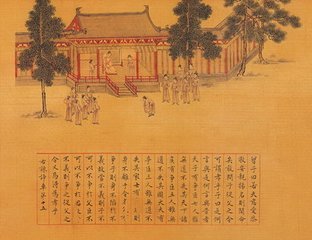 曾子曰若夫慈愛恭
敬安親揚名則聞命
矣敢問子從父之令
可謂孝乎子曰是何
言與是何言與昔者
天子有爭臣七人雖
無道不失其天下諸
侯有爭臣五人雖無
道不失其國大夫有
爭臣三人雖無道不
失其家士有爭友則
身不離於令名父有
爭子則身不陷於不
義故當不義則子不
可以不爭於父臣不
可以不爭於君故當
不義則爭之從父之
令又焉得為孝乎
右諫諍章第十五